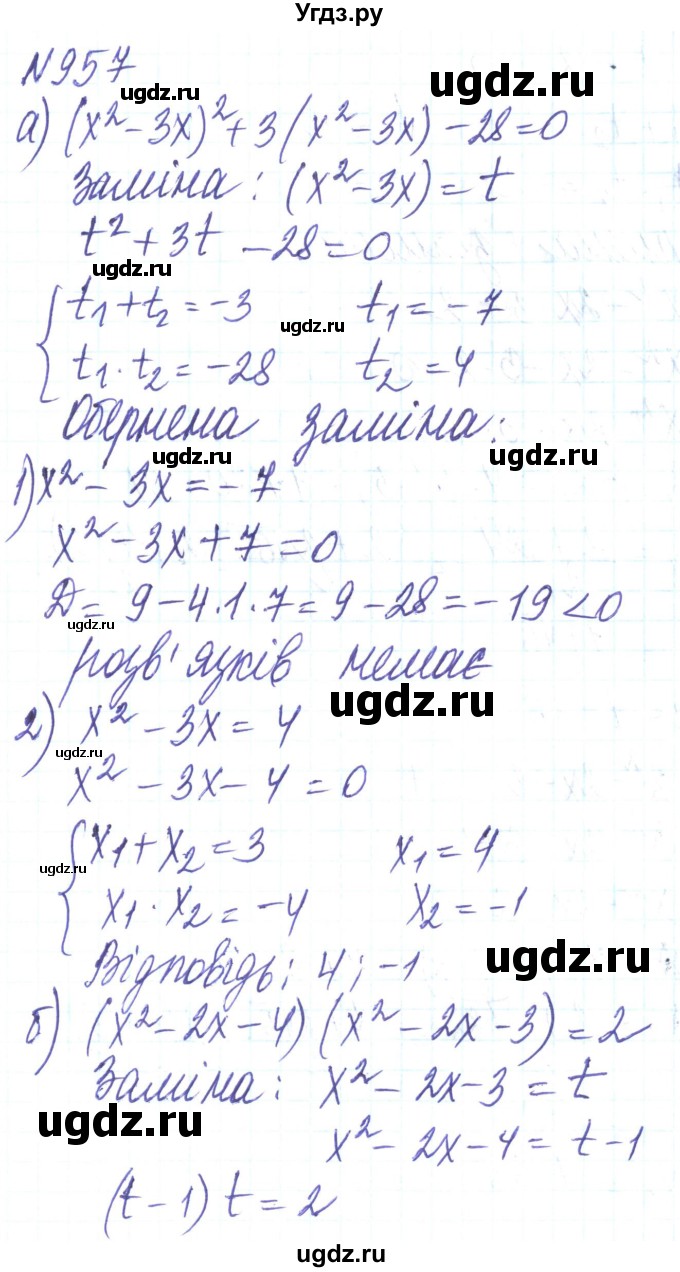 Угдз.ру
№957
ugdz.ru ugdz.ru
а) (x² - 3x)² + 3(x² - 3x) - 28 = 0
ugdz.ru
Заміна: (x² - 3x) = t
t² + 3t - 28 = 0
ugdz.ru
{ t₁ + t₂ = -3 t₁ = -7
ugdz.ru
t₁ · t₂ = -28 t₂ = 4
Обернена заміна:
ugdz.ru ugdz.ru
1) x² - 3x = -7
x² - 3x + 7 = 0
Д = 9 - 4·1·7 = 9 - 28 = -19 < 0
ugdz.ru
розв'язків немає
ugdz.ru
2) x² - 3x = 4
ugdz.ru
x² - 3x - 4 = 0
{ x₁ + x₂ = 3 x₁ = 4
ugdz.ru
x₁ · x₂ = -4 x₂ = -1
Відповідь: 4; -1
ugdz.ru
б) (x² - 2x - 4)(x² - 2x - 3) = 2
Заміна: x² - 2x - 3 = t
ugdz.ru
x² - 2x - 4 = t - 1
(t - 1) t = 2
ugdz.ru